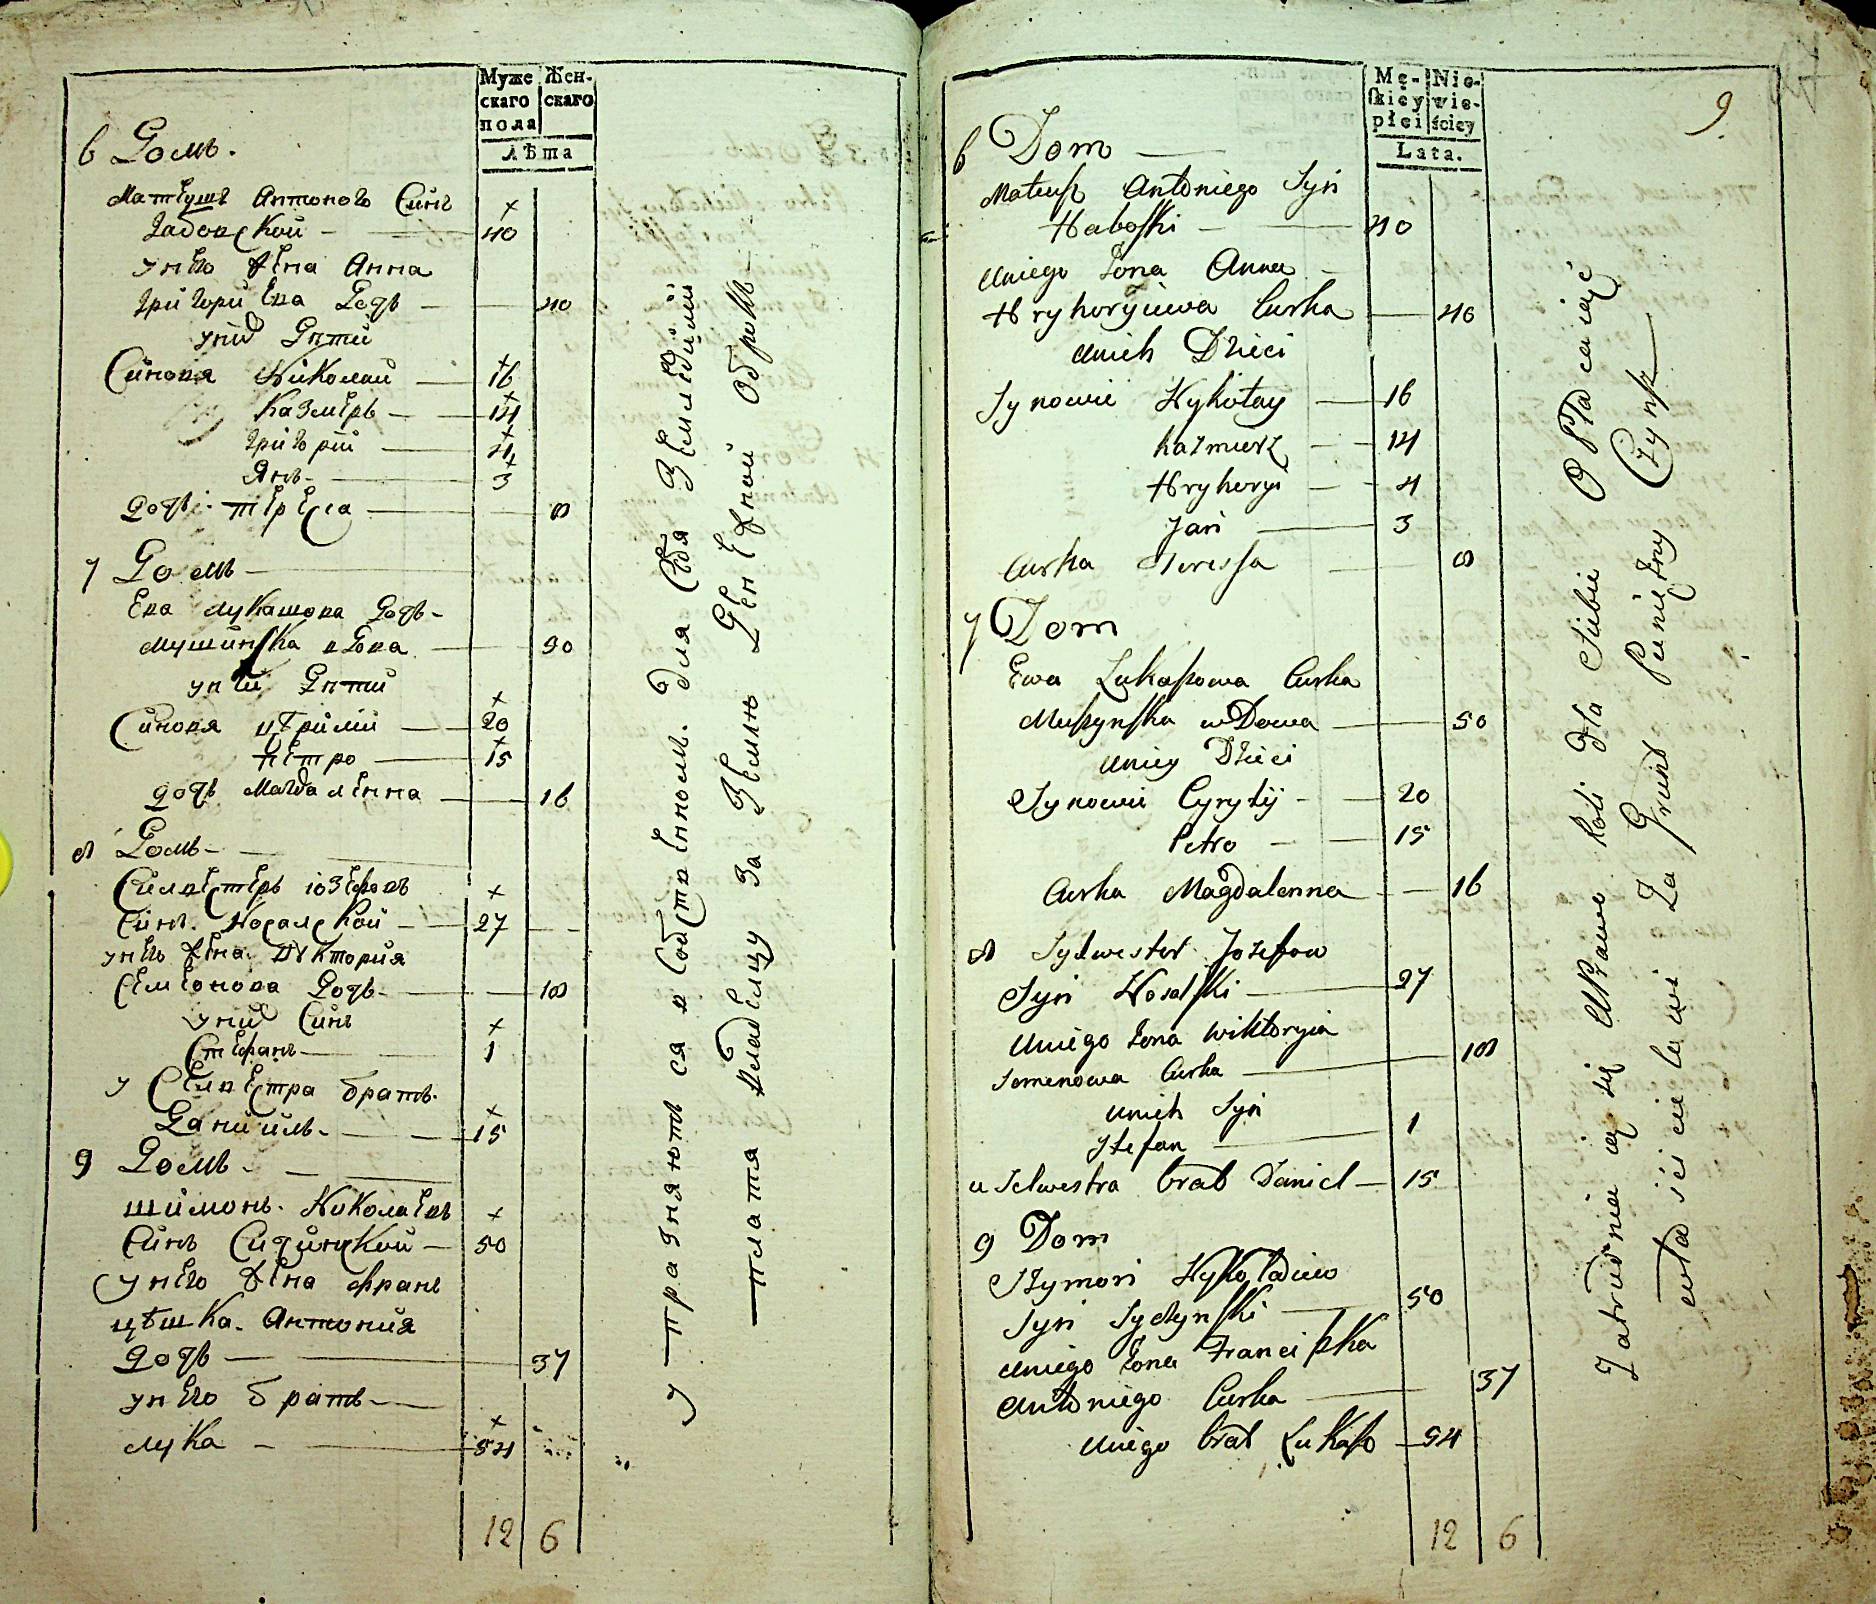 Муже
скаго
пола
Жен-
скаго
Лѣта
6 Домъ.
Матеушъ Антоновъ Синъ
Габовской - 40
унего жена Анна
григориева дочь - 40
унихъ дѣти
Синовя Николай - 16
Казмеръ - 14
григорий - 4
Янъ - 3
дочь тереса - 8
7 Домъ -
Ева Лукашова дочь -
Мушинска вдова - 50
уней дѣти
Синовя Цѣрилий - 20
Петро - 15
дочь Магдаленна - 16
8 Домъ -
Силвестеръ Іозефовъ
Синъ Носалской - 27
унего жена Виктория
Семенова дочь - 18
унихъ Синъ
Стефанъ - 1
у Селвестра братъ.
Данииль - 15
9 Домъ -
Шимонъ Николаевъ
Синъ Сичинской - 50
унего жена Фран
цѣшка Антония
дочь - 37
унего братъ -
Лука - 54
12 6
Упражняются в Собственной для Себя Земледѣлии
платя владелцу За Землю Денежной Оброкъ -
Mę-
skiey
płci
Nie-
wie-
ściey
Lata.
9.
6 Dom
Mateusz Antoniego Syn
Haboski - 40
Uniego Żona Anna -
Hryhoryiewa Curka - 40
Unich Dzieci
Synowie Nykołay - 16
Kazmierz - 14
Hryhory - 4
Jan - 3
Curka Teressa - 8
7 Dom
Ewa Łukaszowa Curka
Muszynska wDowa - 50
Uniey Dzieci
Synowie Cyryly - 20
Petro - 15
Curka Magdalenna - 16
8 Sylwester Jozefow
Syn Nosalski - 27
Uniego Żona Wiktoryia
Semenowa Curka - 18
Unich Syn
Stefan - 1
u Selwestra brat Daniel - 15
9 Dom
Szymon Nykołaiew
Syn Syczynski - 50
Uniego Żona Franciszka
Antoniego Curka - 37
Uniego brat Łukasz - 54
12 6
Zatrudniaią się Uprawo Roli dla Siebie Opłacaiąc
właścicielowi Za Grunt Pienięzny Czynsz